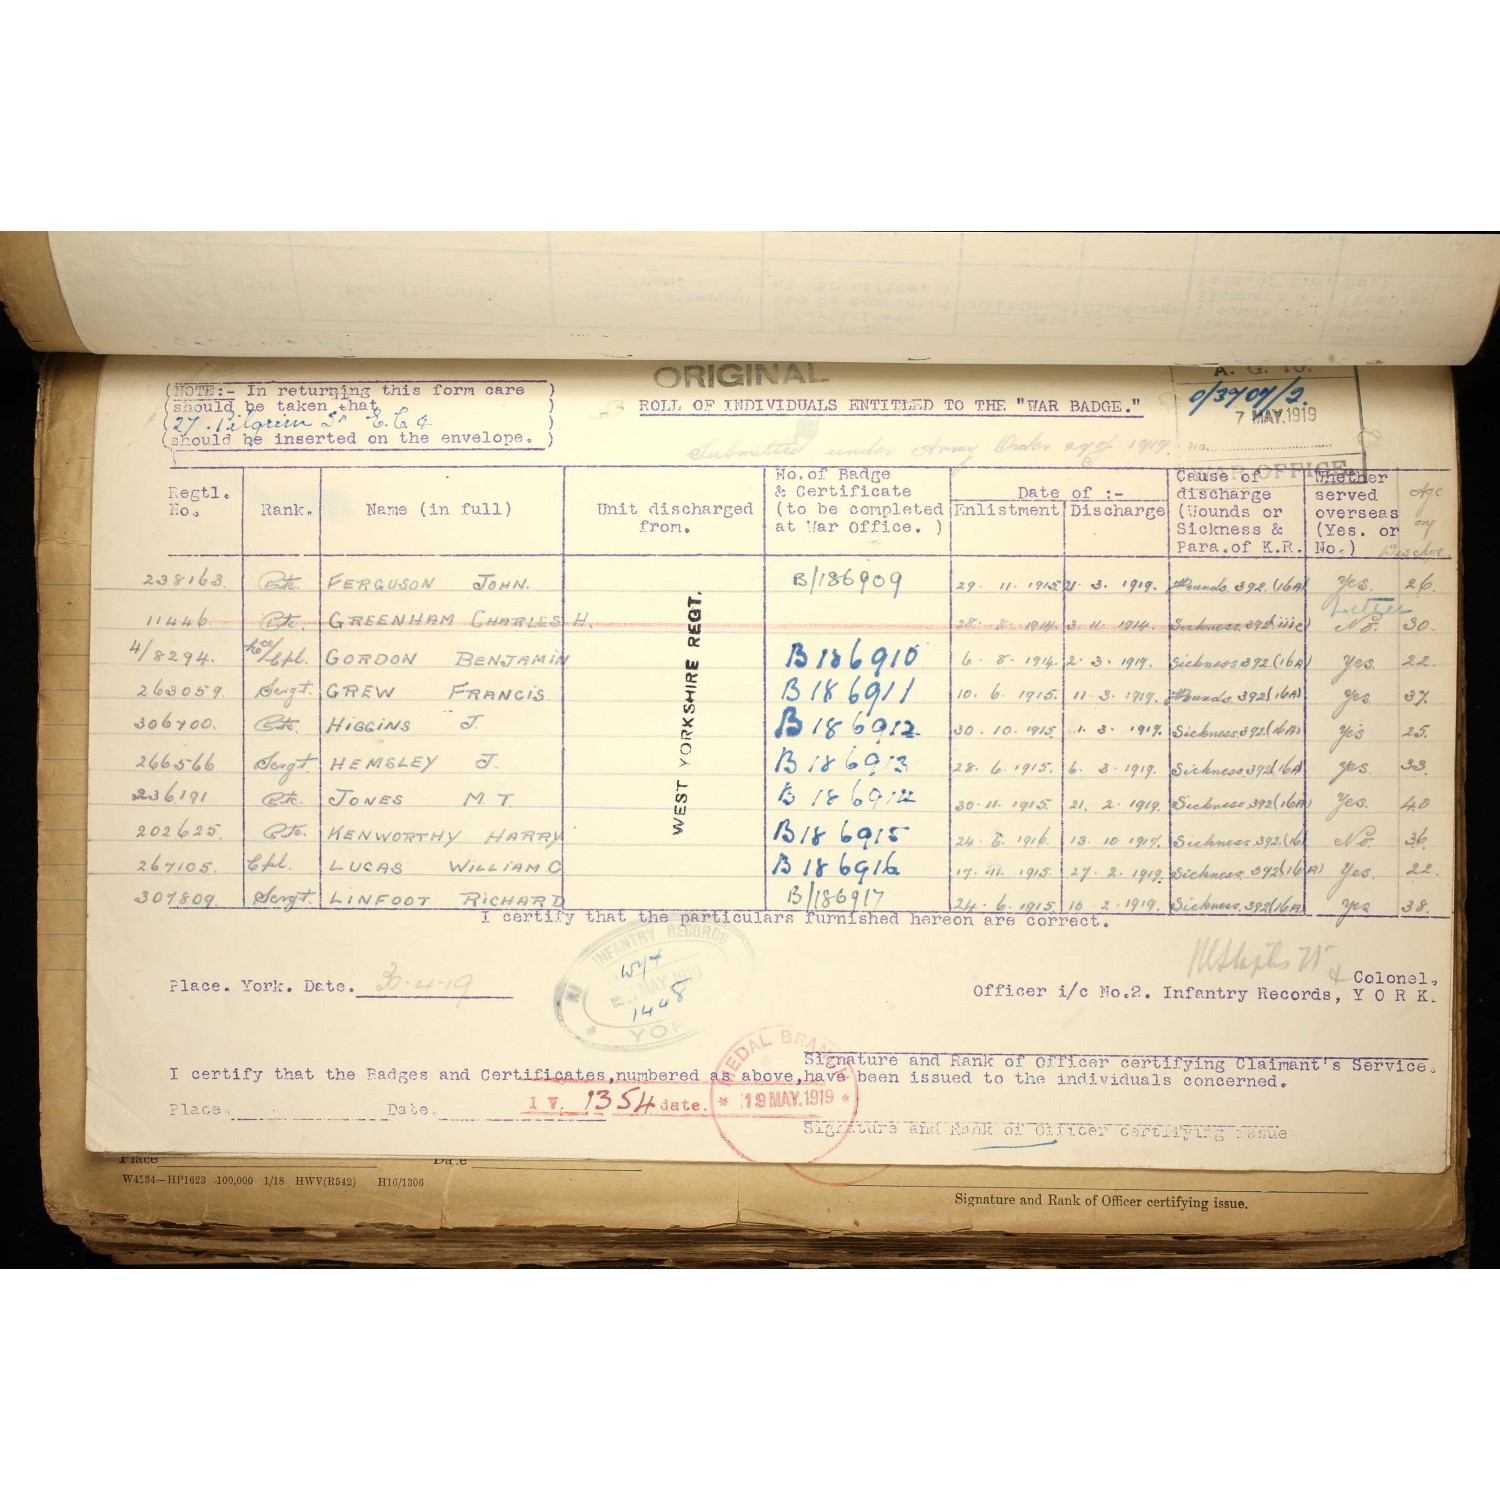 ORIGINAL
A. G. 10.
0/3707/2.
7 MAY.1919
No.
WAR OFFICE.
(NOTE:- In returning this form care )
(should be taken that )
(27. Pilgrim St E.C.4 )
(should be inserted on the envelope. )
ROLL OF INDIVIDUALS ENTITLED TO THE "WAR BADGE."
Submitted under Army Order 29 of 1919.
Regtl. No. Rank. Name (in full) Unit discharged from. No. of Badge & Certificate (to be completed at War Office. ) Date of :- Enlistment Discharge Cause of discharge (Wounds or Sickness & Para.of K.R. Whether served overseas (Yes. or No.) Age on Dischge
WEST YORKSHIRE REGT.
238163. Pte. FERGUSON JOHN. B/186909 29. 11. 1915 1. 3. 1919. Wounds. 392 (16A) Yes. 26.
Letter
11446. Pte. GREENHAM CHARLES H. 28. 8. 1914. 3. 11. 1914. Sickness. 392(iiic) No. 30.
4/8294. L/Cpl. GORDON BENJAMIN B186910 6. 8. 1914. 2. 3. 1919. Sickness 392 (16A) Yes. 22.
263059. Sergt. GREW FRANCIS. B186911 10. 6. 1915. 11. 3. 1919. Wounds. 392(16A) Yes 37.
306700. Pte. HIGGINS J. B186912 30. 10. 1915. 1. 3. 1919. Sickness.392(16A) Yes 25.
266566 Sergt. HEMSLEY J. B186913 28. 6. 1915. 6. 3. 1919. Sickness.392(16A) Yes. 33.
236191 Pte. JONES M.T. B186914 30.11.1915. 21. 2. 1919. Sickness.392(16A) Yes. 40
202625. Pte. KENWORTHY HARRY B186915 24. 6. 1916. 13. 10 1917. Sickness.392.(16) No. 36.
267105. Cpl. LUCAS WILLIAM C B186916 17. 11. 1915. 27. 2. 1919. Sickness 392(16A) Yes. 22.
307809. Sergt. LINFOOT RICHARD B/186917 24. 6. 1915 10. 2. 1919. Sickness.392(16A) Yes 38.
I certify that the particulars furnished hereon are correct.
INFANTRY RECORDS
MAY 1919
1448
YORK
Place. York. Date. 30.4.19
Colonel,
Officer i/c No.2. Infantry Records, Y O R K.
Signature and Rank of Officer certifying Claimant's Service.
I certify that the Badges and Certificates,numbered as above,have been issued to the individuals concerned.
MEDAL BRANCH
* 19 MAY.1919 *
Place. Date. I V. 1354 date.
Signature and Rank of Officer certifying issue
Place Date
W4234—HP1623 100,000 1/18 HWV(R542) H16/1306
Signature and Rank of Officer certifying issue.